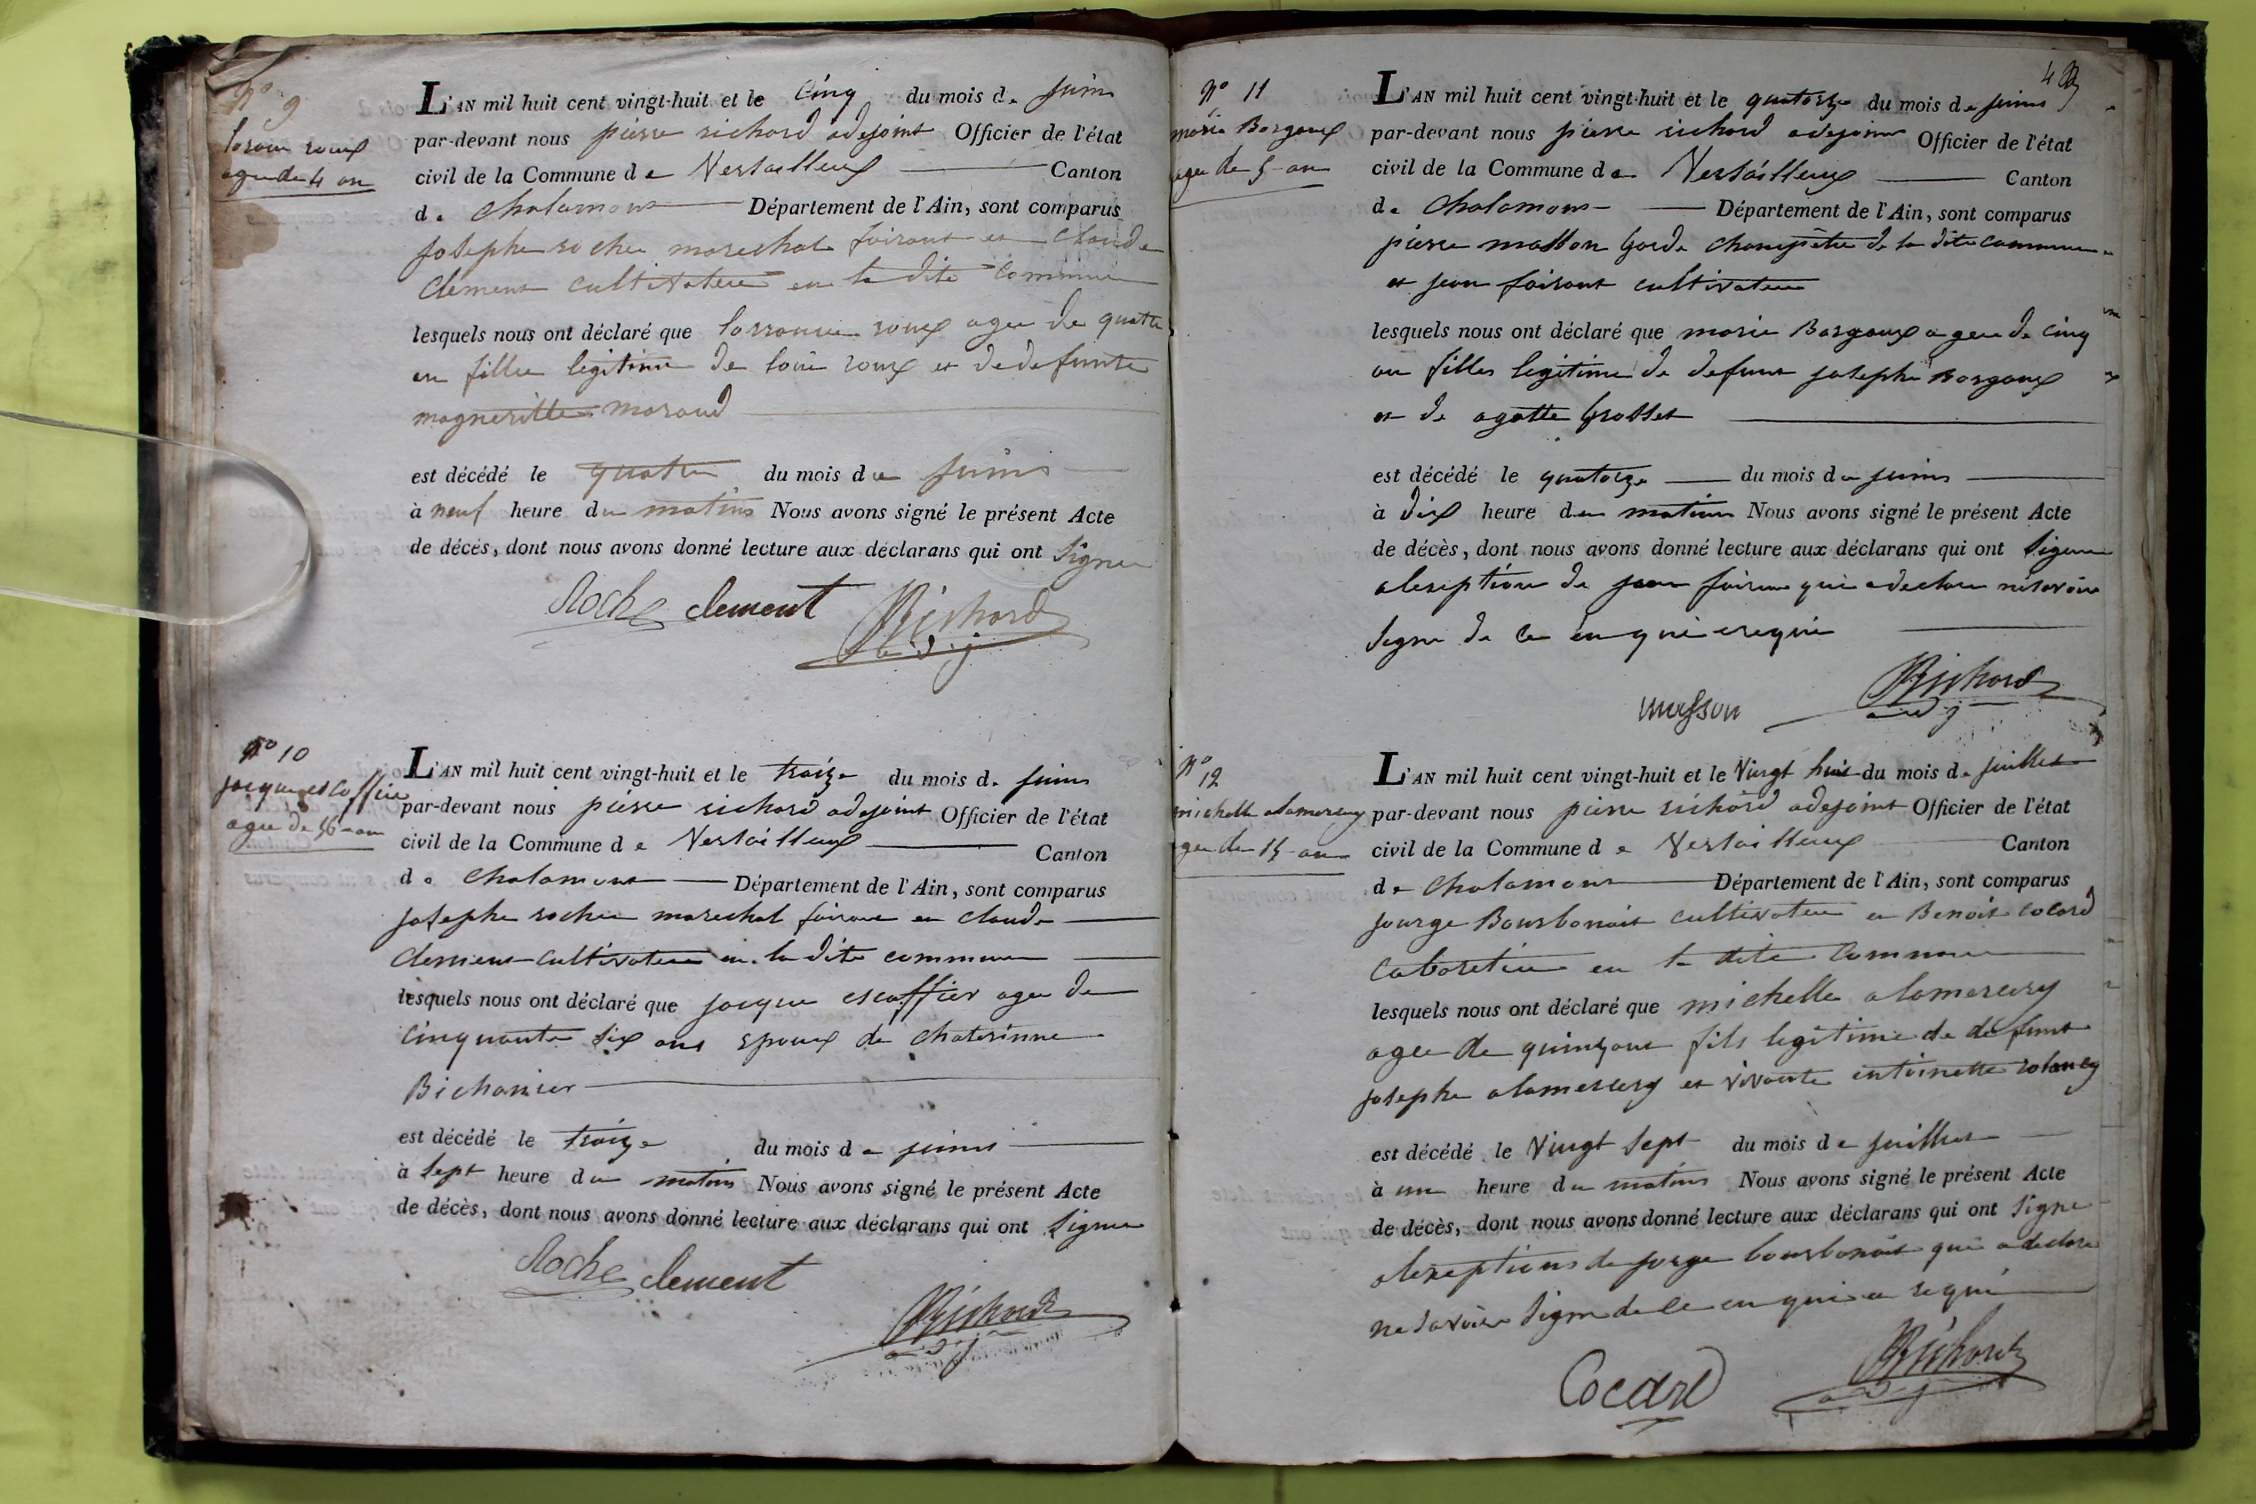 N° 9
roux
agee de 4 an
L'AN mil huit cent vingt-huit et le cinq du mois de juins
par-devant nous pierre richard adejoint Officier de l'état
civil de la Commune de Versailleux Canton
de chalamont Département de l'Ain, sont comparus
josephe roche marechal foirant et claude
clement cultivateur en la dite commune
lesquels nous ont déclaré que roux agee de quatre
an fille legitime de loui roux et de defunte
magneritte moraud
est décédé le quatre du mois de juins
à neuf heure du matins Nous avons signé le présent Acte
de décès, dont nous avons donné lecture aux déclarans qui ont signe
Roche clement Richard
adj
N° 10
jacque escoffier
agee de 56 an
L'AN mil huit cent vingt-huit et le traize du mois de juins
par-devant nous pierre richard adejoint Officier de l'état
civil de la Commune de Versailleux Canton
de chalamont Département de l'Ain, sont comparus
josephe roche marechal foirant et claude
clement cultivateur en la dite commune
lesquels nous ont déclaré que jacque escoffier agee de
cinquante six ans epoux de chaterinne
Bichonier
est décédé le traize du mois de juins
à sept heure du matins Nous avons signé le présent Acte
de décès, dont nous avons donné lecture aux déclarans qui ont signe
Roche clement
Richard
adj
4
N° 11
marie Bargoux
agee de 5 an
L'AN mil huit cent vingt-huit et le quatorze du mois de juins
par-devant nous pierre richard adejoint Officier de l'état
civil de la Commune de Versailleux Canton
de chalamont Département de l'Ain, sont comparus
pierre masson garde champêtre de la dite commune
et jean foirant cultivateur
lesquels nous ont déclaré que marie Bargoux agee de cinq
an filles legitime de defunt josephe Bargoux
et de agatte grosset
est décédé le quatorze du mois de juins
à dix heure du matins Nous avons signé le présent Acte
de décès, dont nous avons donné lecture aux déclarans qui ont signe
aleseption de jean foirant qui a declare ne savoir
signe de ce en qui erequi
Richard
masson adj
N° 12
michelle alamercery
agee de 15 an
L'AN mil huit cent vingt-huit et le Vingt huit du mois de juillet
par-devant nous pierre richard adejoint Officier de l'état
civil de la Commune de Versailleux Canton
de chalamont Département de l'Ain, sont comparus
jourge Bourbonoit cultivateur et Benoit cocard
cabaretier en la dite commune
lesquels nous ont déclaré que michelle alamercery
agee de quinz ant fils legitime de defunt
josephe alamercery et vivante entoinette
est décédé le Vingt sept du mois de juillet
à une heure du matins Nous avons signé le présent Acte
de décès, dont nous avons donné lecture aux déclarans qui ont signe
alexeptions de jorge bourbonoit qui a declare
ne savoire signe de ce en qui a requi
Cocard Richard
adj